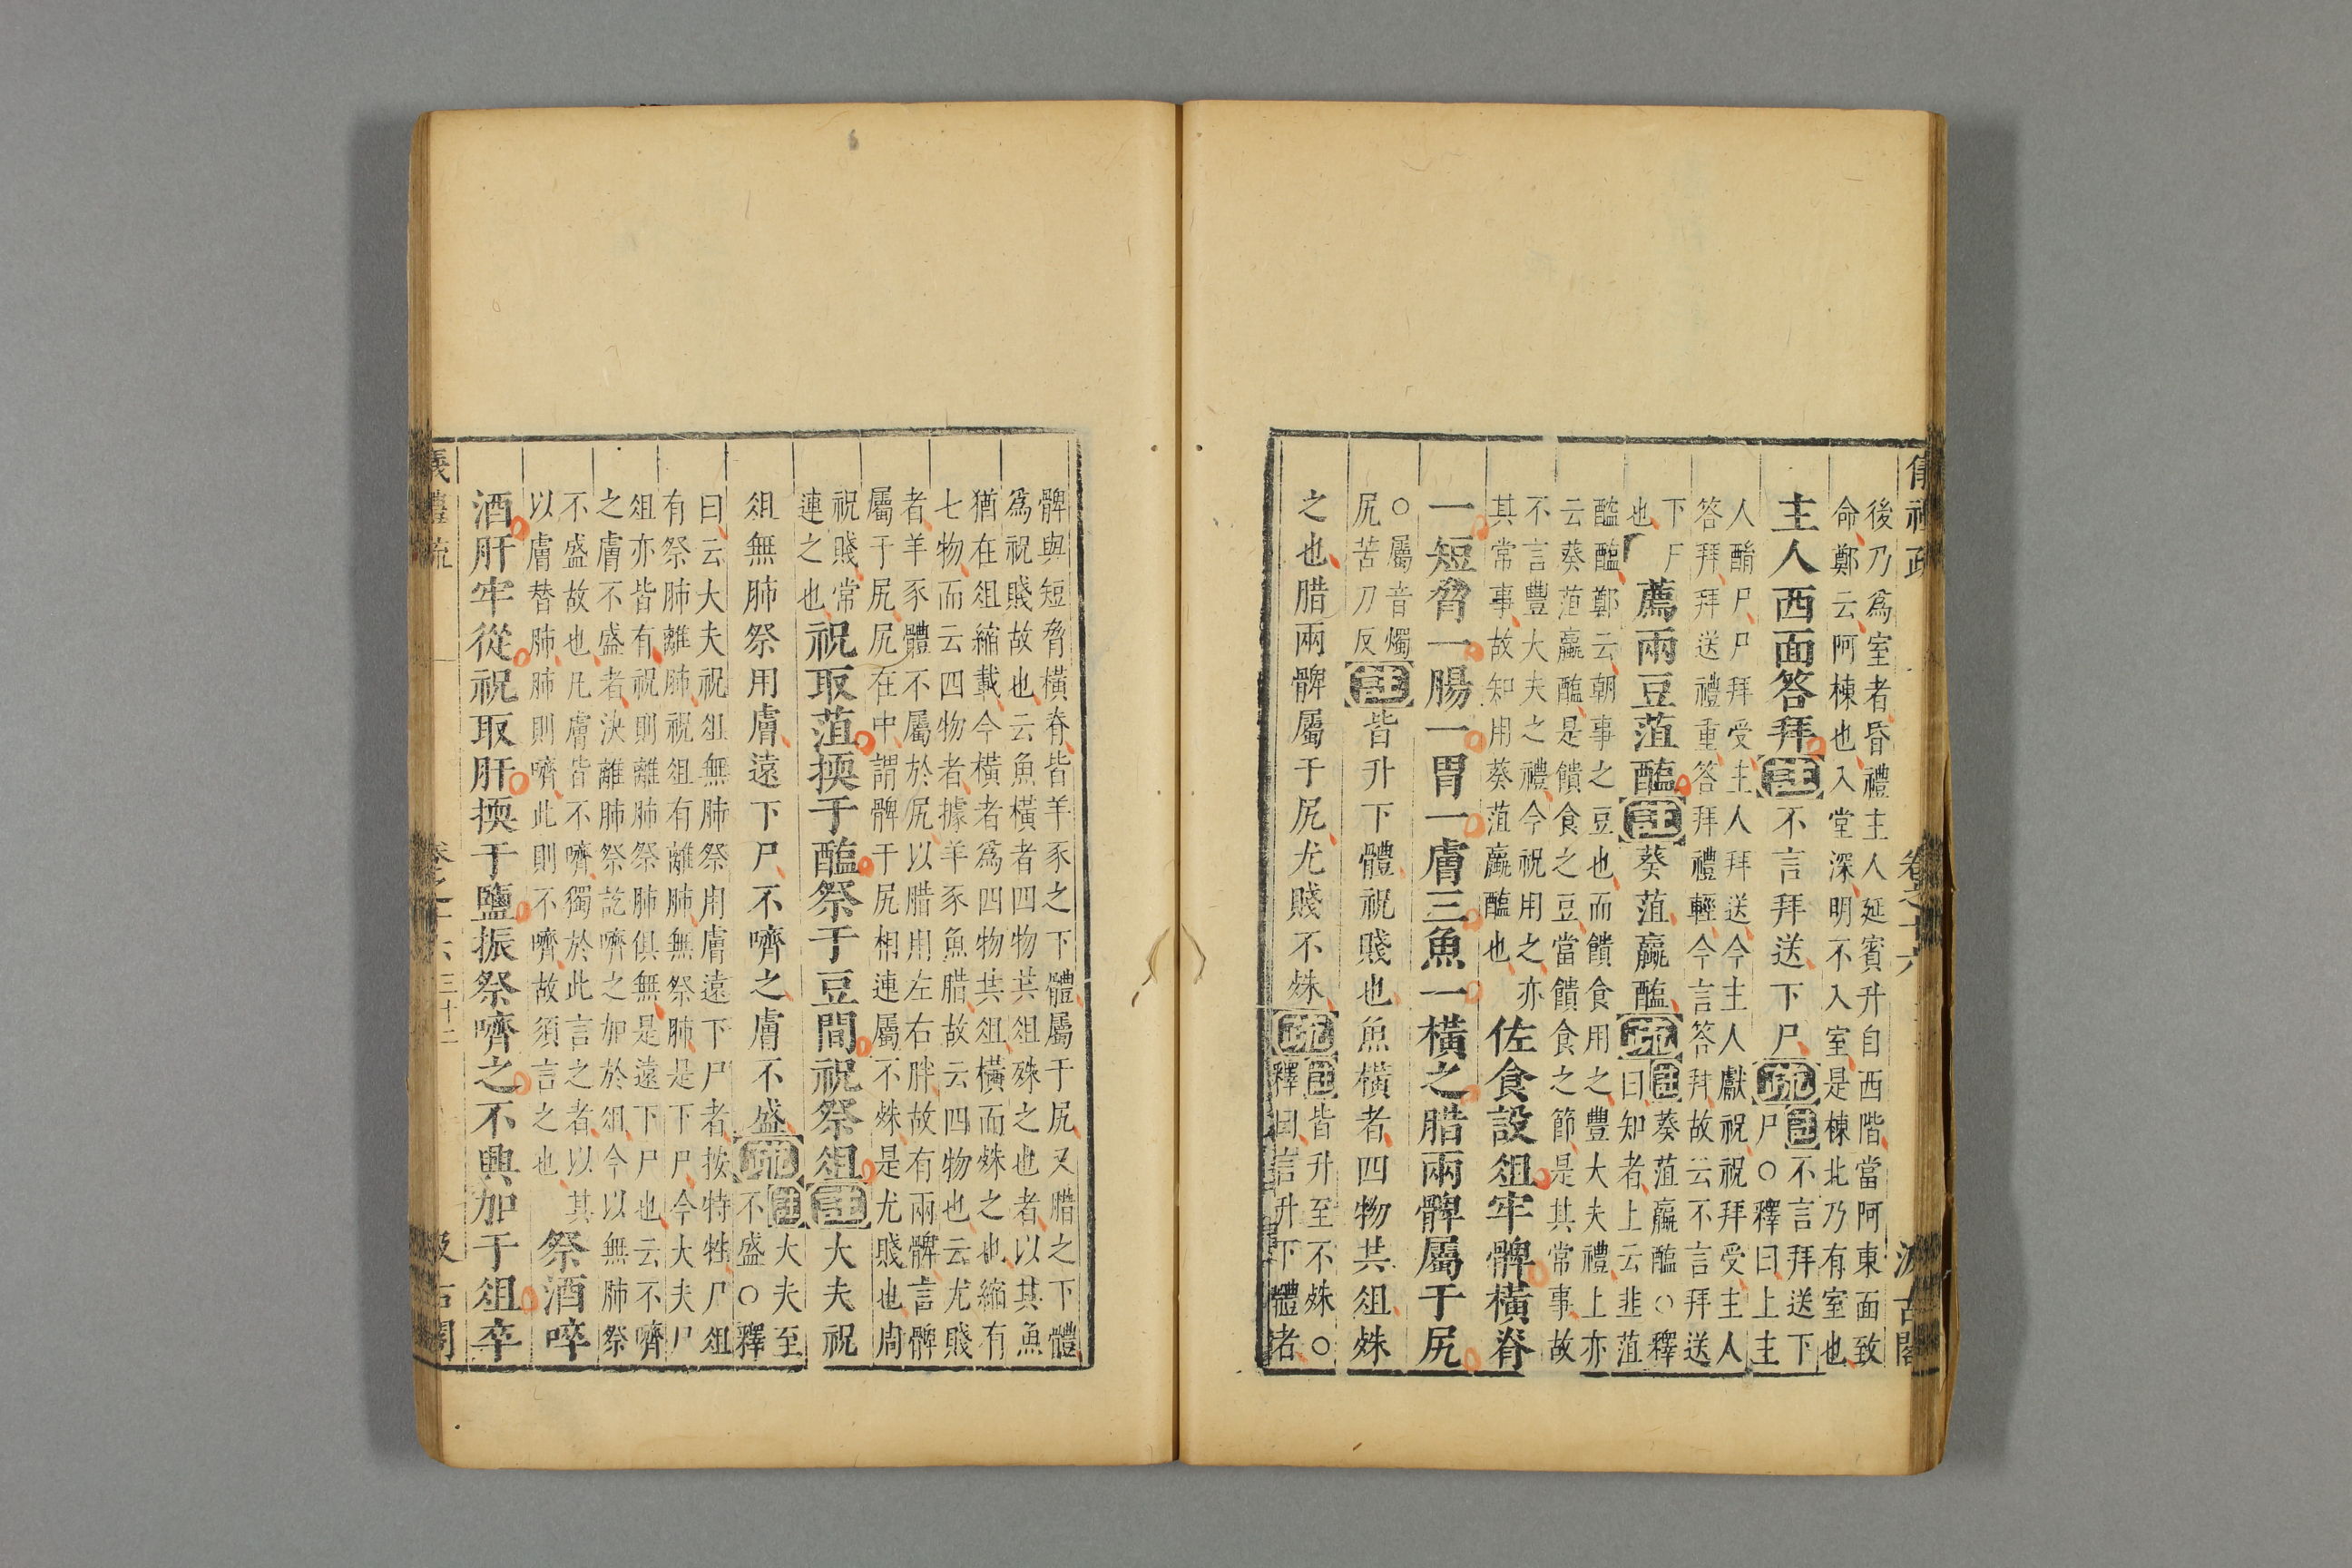 儀禮疏 卷之十六 汲古閣
後乃爲室者昏禮主人延賓升自西階當阿東面致
命鄭云阿棟也入堂深明不入室是棟北乃有室也
主人西面答拜註不言拜送下尸疏註不言拜送下
尸○釋曰上主
人酳尸尸拜受主人拜送今主人獻祝祝拜受主人
答拜拜送禮重答拜禮輕今言答拜故云不言拜送
下尸
也薦兩豆菹醢註葵菹蠃醢疏註葵菹蠃醢○釋
曰知者上云韭菹
醢醢鄭云朝事之豆也而饋食用之豐大夫禮上亦
云葵菹蠃醢是饋食之豆當饋食之節是其常事故
不言豐大夫之禮今祝用之亦
其常事故知用葵菹蠃醢也佐食設俎牢髀橫脊
一短脅一腸一胃一膚三魚一橫之腊兩髀屬于尻
○屬音燭
尻苦刀反註皆升下體祝賤也魚橫者四物共俎殊
之也腊兩髀屬于尻尤賤不殊疏註皆升至不殊○
釋曰言升下體者
髀與短脅橫脊皆羊豕之下體屬于尻又腊之下體
爲祝賤故也云魚橫者四物共俎殊之也者以其魚
猶在俎縮載今橫者爲四物共俎橫而殊之也縮有
七物而云四物者據羊豕魚腊故云四物也云尤賤
者羊豕體不屬於尻以腊用左右胖故有兩髀言髀
屬于尻尻在中謂髀于尻相連屬不殊是尤賤也周
祝賤常
連之也祝取菹㨎于醢祭于豆間祝祭俎註大夫祝
俎無肺祭用膚遠下尸不嚌之膚不盛疏註大夫至
不盛○釋
曰云大夫祝俎無肺祭用膚遠下尸者按特牲尸俎
有祭肺離肺祝俎有離肺無祭肺是下尸今大夫尸
俎亦皆有祝則離肺祭肺俱無是遠下尸也云不嚌
之膚不盛者決離肺祭訖嚌之加於俎今以無肺祭
不盛故也凡膚皆不嚌獨於此言之者以其
以膚替肺肺則嚌此則不嚌故須言之也祭酒啐
酒肝牢從祝取肝㨎于鹽振祭嚌之不興加于俎卒
卷之十六 三十二